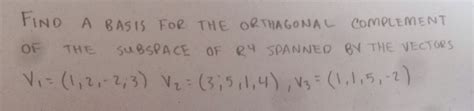 FIND A BASIS FOR THE ORTHAGONAL COMPLEMENT
OF THE SUBSPACE OF R4 SPANNED BY THE VECTORS
V₁ = (1,2,-2,3) V₂ = (3,5,1,4), V₃ = (1,1,5,-2)